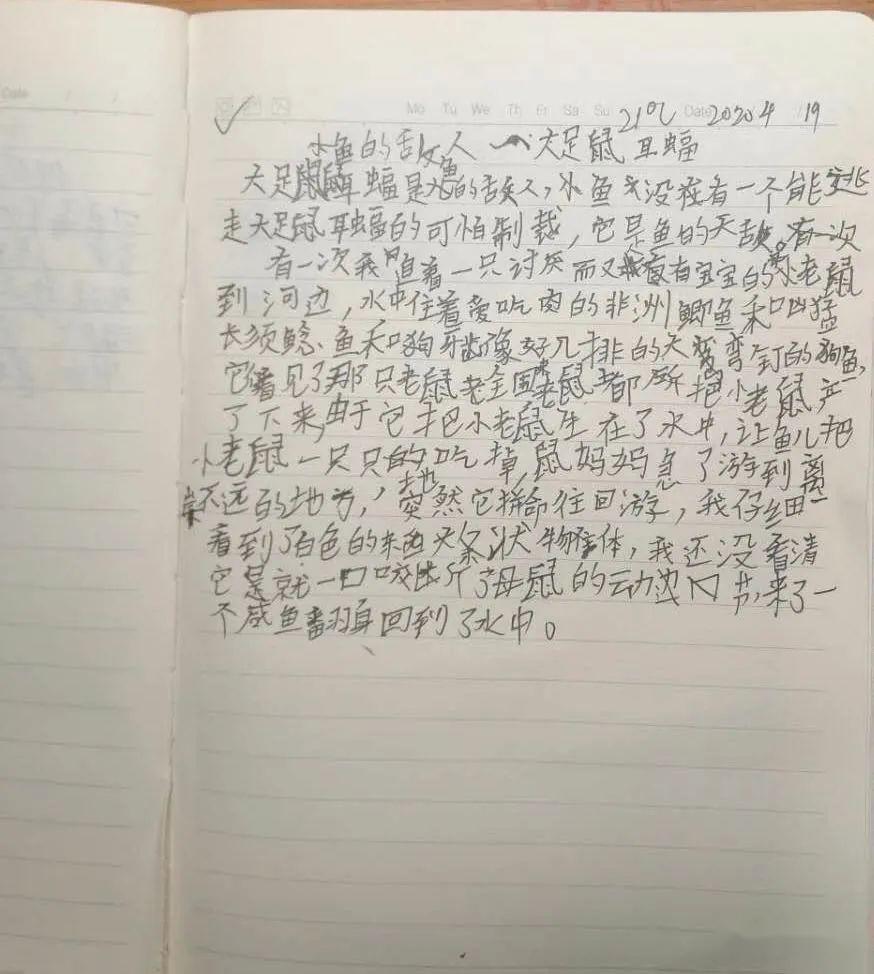 Date / /
Mo Tu We Th Fr Sa Su 21℃ Date 2020 4 / 19
小鱼的敌人 ~ 大足鼠耳蝠
大足鼠耳蝠是鱼的敌人,小鱼没有一个能逃
走大足鼠耳蝠的可怕制裁,它是鱼的天敌。有一次
有一次我们追着一只讨厌而又有宝宝的老鼠
到河边,水中住着爱吃肉的非洲鲫鱼和凶猛
长须鲶鱼和狗牙齿像好几排的大弯钉的狗鱼,
它看见了那只老鼠老鼠把小老鼠产
了下来,由于它把小老鼠生在了水中,让鱼儿把
小老鼠一只只的吃掉,鼠妈妈急了游到离
岸不远的地方,突然它拼命往回游,我仔细一
看到了白色的东西条状物体,我还没看清
它是就一口咬母鼠的动边节,来了一
个咸鱼翻身回到了水中。